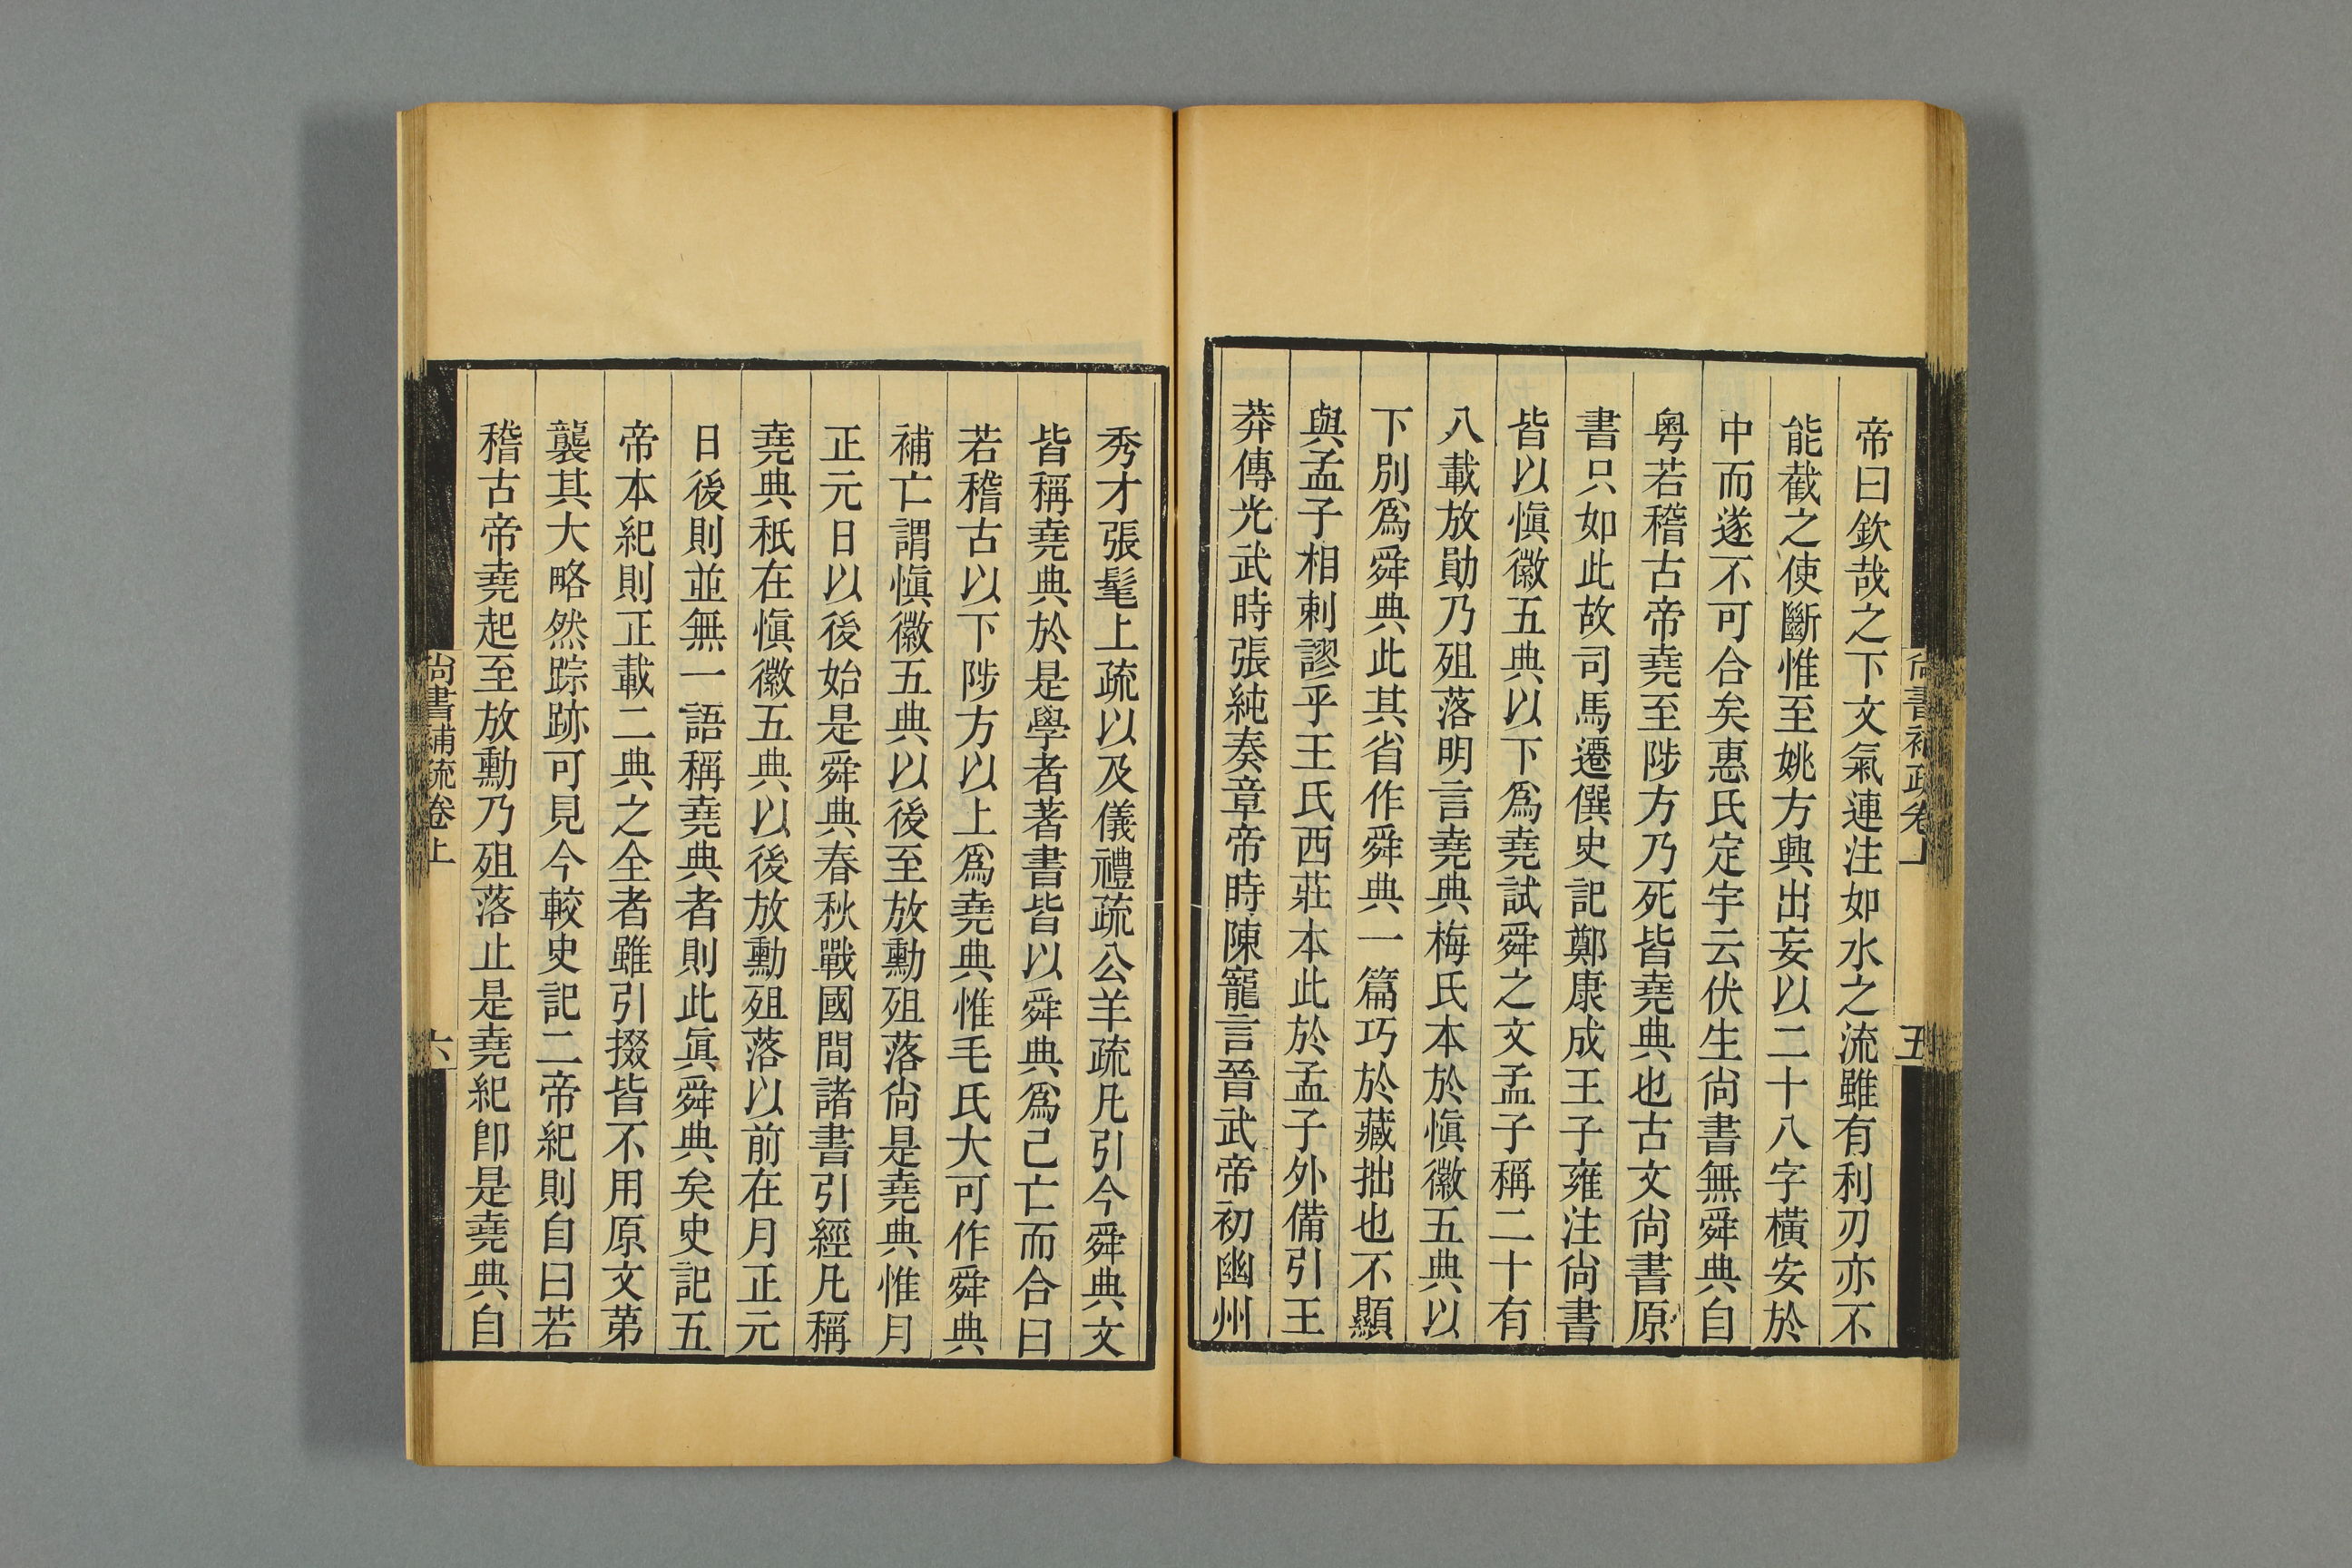 尚書補疏卷上
五
帝曰欽哉之下文氣連注如水之流雖有利刃亦不
能截之使斷惟至姚方興出妄以二十八字橫安於
中而遂不可合矣惠氏定宇云伏生尚書無舜典自
粵若稽古帝堯至陟方乃死皆堯典也古文尚書原
書只如此故司馬遷僎史記鄭康成王子雍注尚書
皆以慎徽五典以下爲堯試舜之文孟子稱二十有
八載放勛乃殂落明言堯典梅氏本於慎徽五典以
下別爲舜典此其省作舜典一篇巧於藏拙也不顯
與孟子相剌謬乎王氏西莊本此於孟子外備引王
莽傳光武時張純奏章帝時陳寵言晉武帝初幽州
秀才張髦上疏以及儀禮疏公羊疏凡引今舜典文
皆稱堯典於是學者著書皆以舜典爲己亡而合曰
若稽古以下陟方以上爲堯典惟毛氏大可作舜典
補亡謂慎徽五典以後至放勳殂落尚是堯典惟月
正元日以後始是舜典春秋戰國間諸書引經凡稱
堯典秖在慎徽五典以後放勳殂落以前在月正元
日後則並無一語稱堯典者則此眞舜典矣史記五
帝本紀則正載二典之全者雖引掇皆不用原文苐
襲其大略然踪跡可見今較史記二帝紀則自曰若
稽古帝堯起至放勳乃殂落止是堯紀卽是堯典自
尚書補疏卷上
六